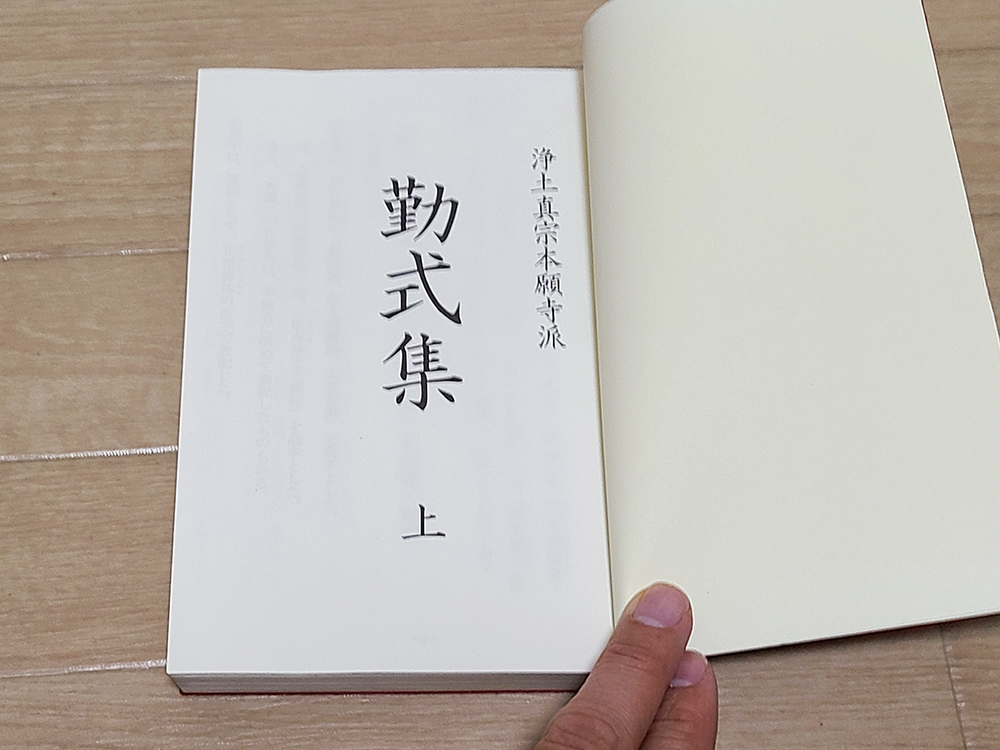 浄土真宗本願寺派
勤式集
上